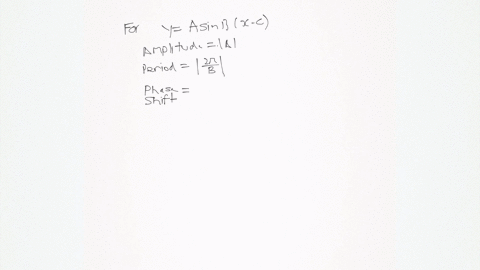 For y = A sin B (x - c)
Amplitude = |A|
Period = |2π/B|
Phase
Shift =